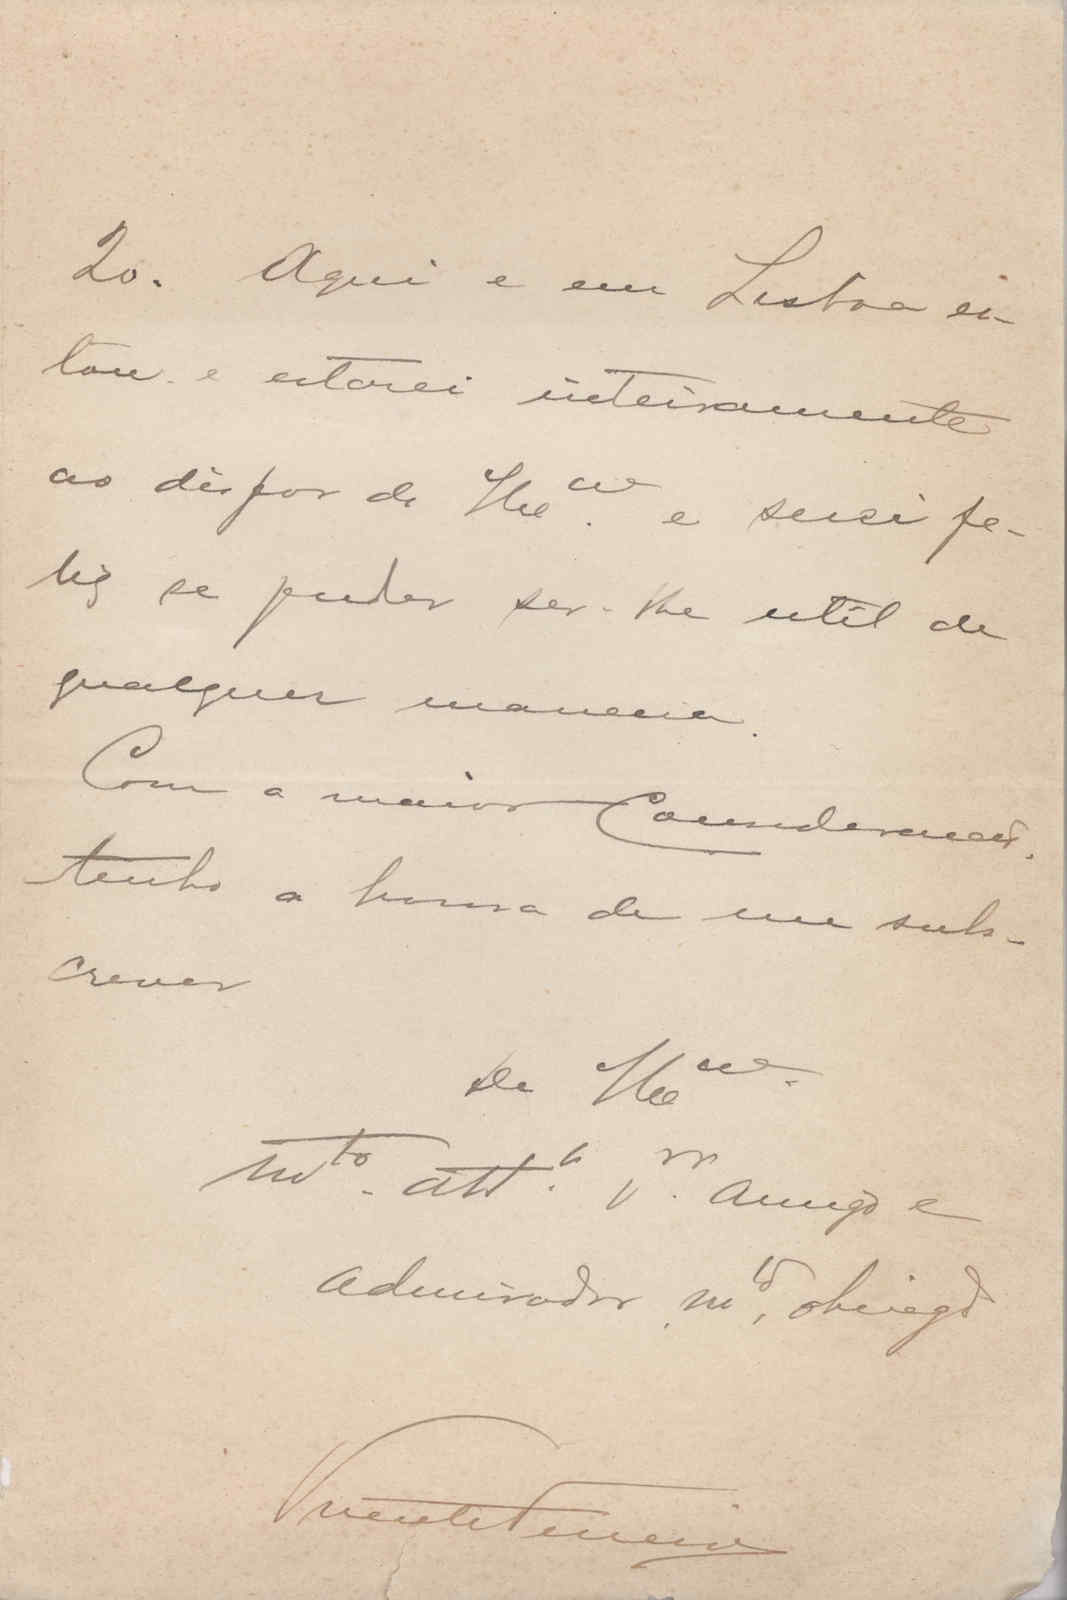 20. Aqui e em Lisboa es-
tou e estarei inteiramente
ao dispor de V. Ex.cia e serei fe-
liz se puder ser-lhe util de
qualquer maneira.
Com a maior Consideração.
tenho a honra de me subs-
crever
De V. Ex.cia
Mto. att.o Vor. Amigo e
admirador mto, obrigdo
Vicente Ferreira